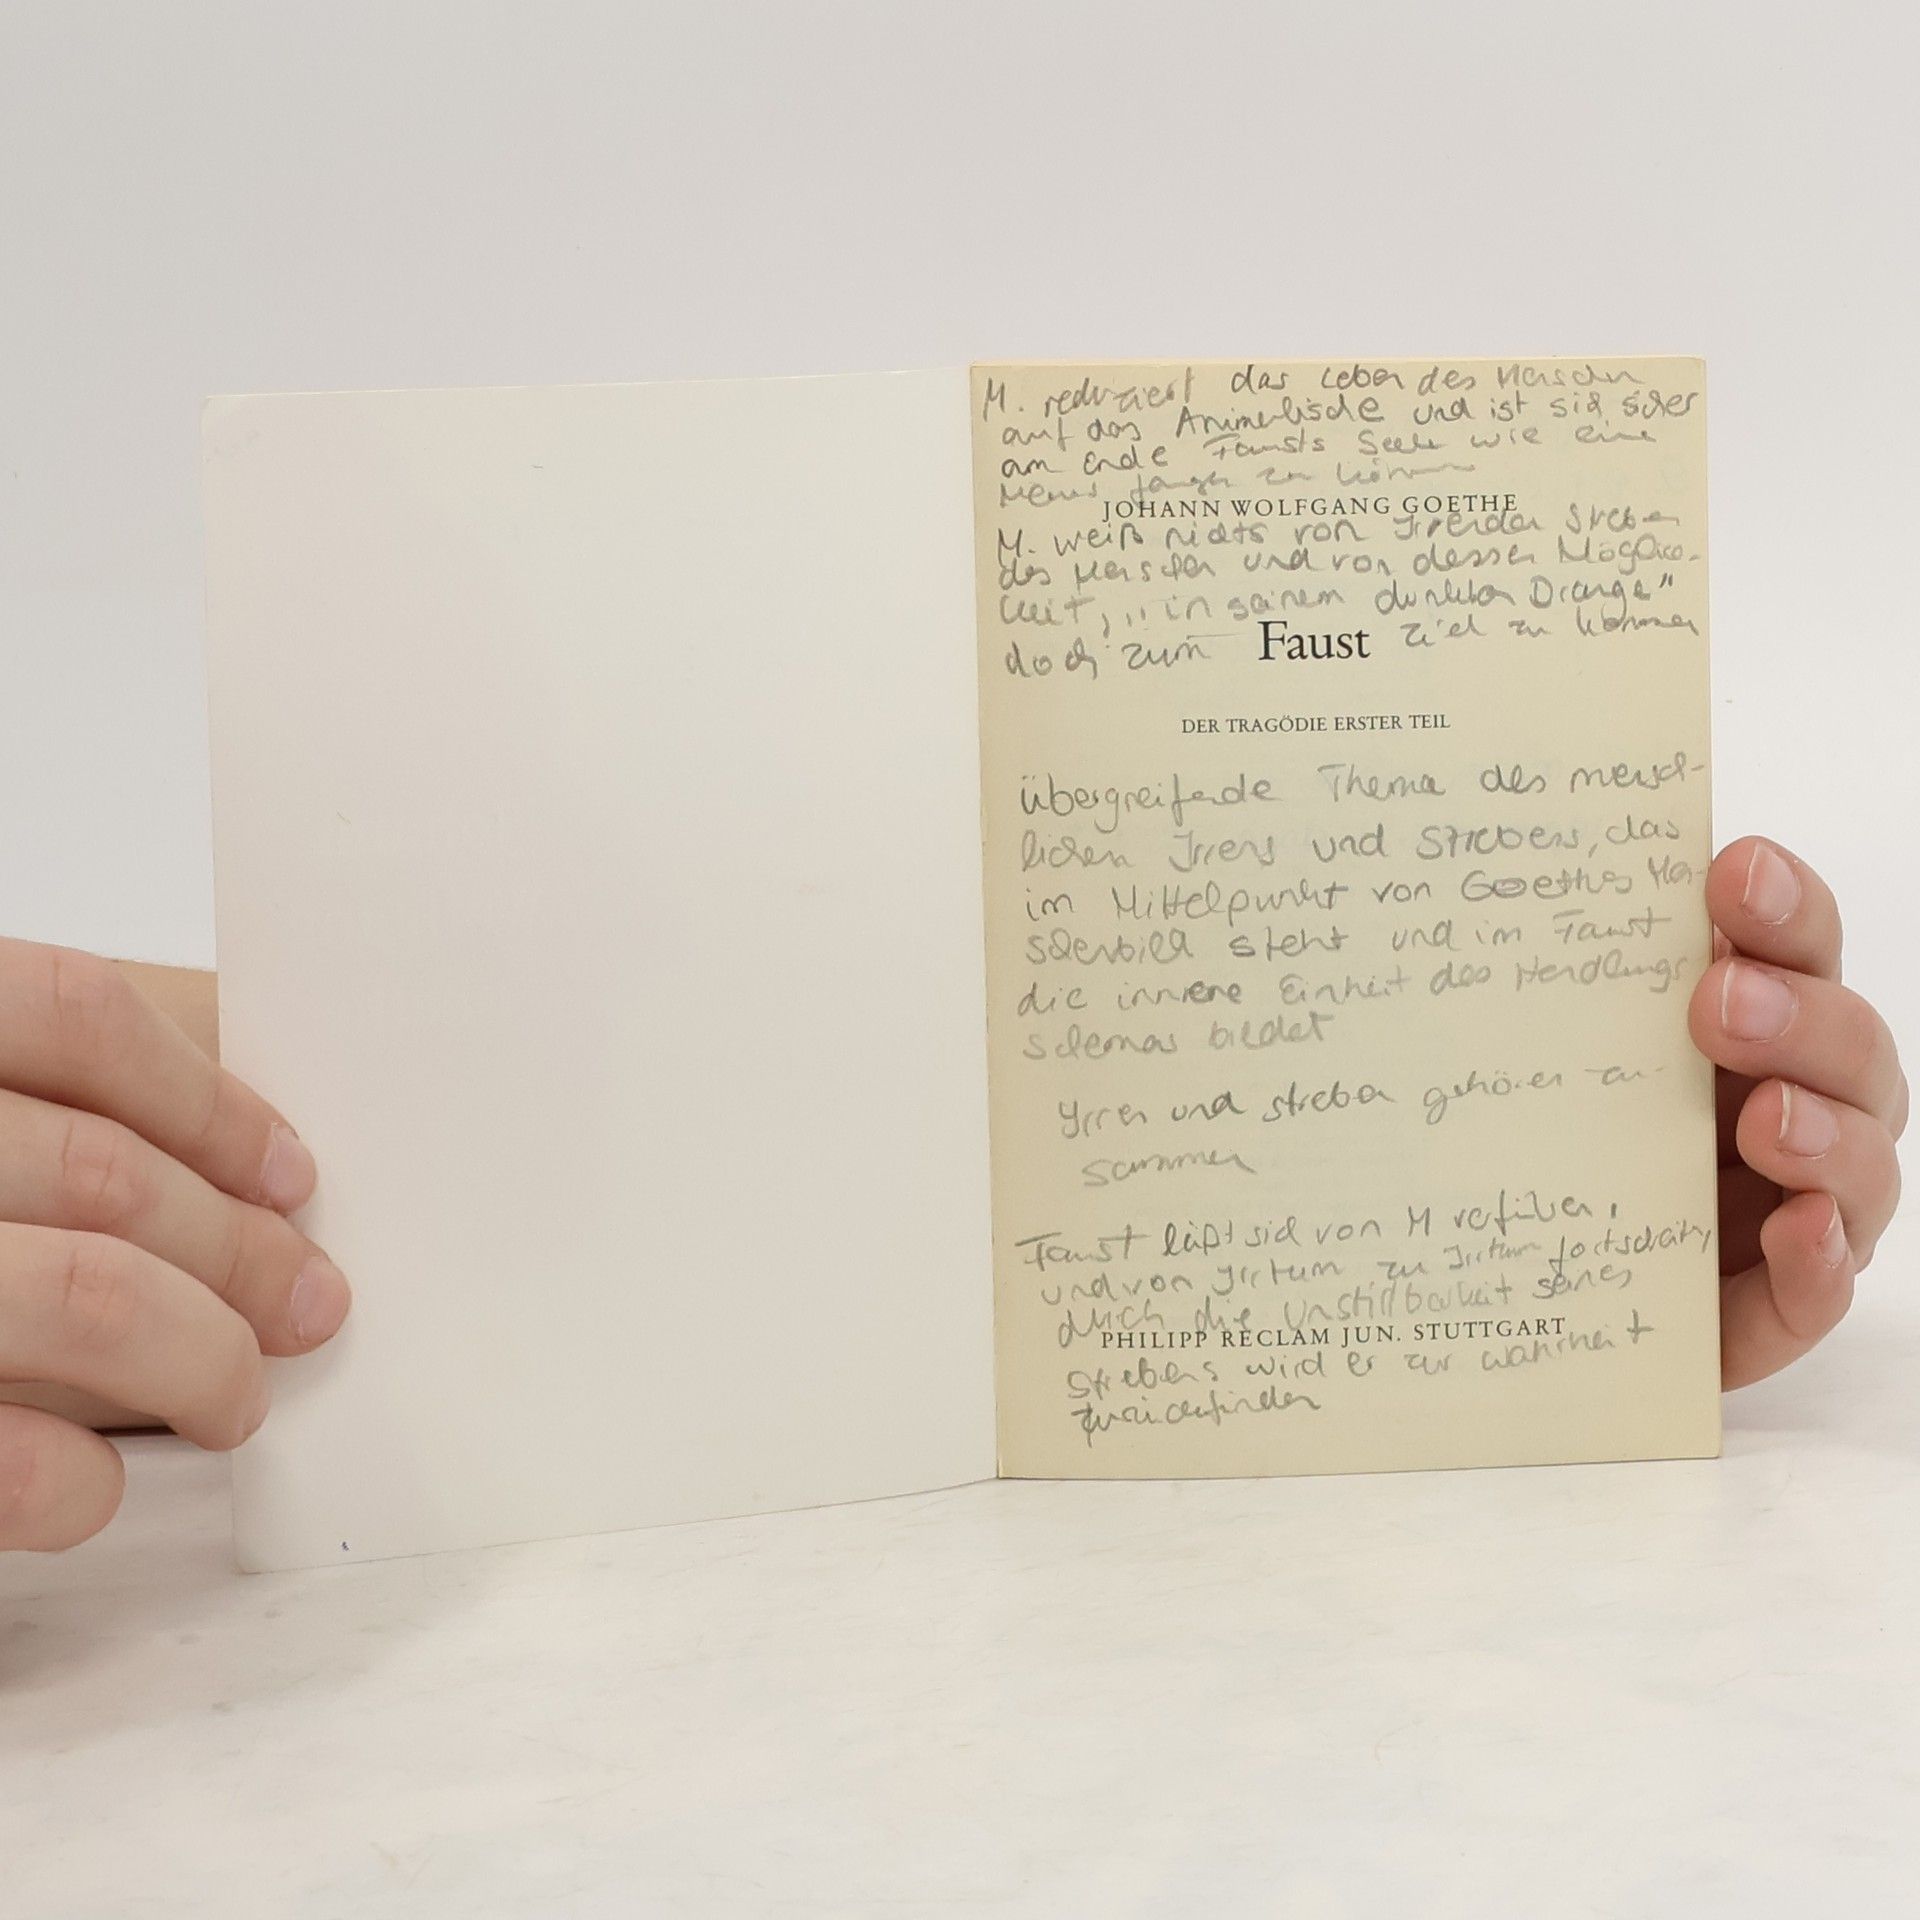 M. reduziert das Leben des Menschen
auf das Animalische und ist sich sicher
am Ende Fausts Seele wie eine
Maus fangen zu können
JOHANN WOLFGANG GOETHE
M. weiß nichts von Irrenden Streben
des Menschen und von dessen Möglich-
keit, „in seinem dunklen Drange"
doch zum Ziel zu kommen
Faust
DER TRAGÖDIE ERSTER TEIL
übergreifende Thema des mensch-
lichen Irrens und Strebens, das
im Mittelpunkt von Goethes Men-
schenbild steht und im Faust
die innere Einheit des Handlungs
schemas bildet
Irren und streben gehören zu-
sammen
Faust läßt sich von M verführen,
und von Irrtum zu Irrtum fortschreiten,
durch die Unstillbarkeit seines
PHILIPP RECLAM JUN. STUTTGART
Strebens wird er zur Wahrheit
zurückfinden